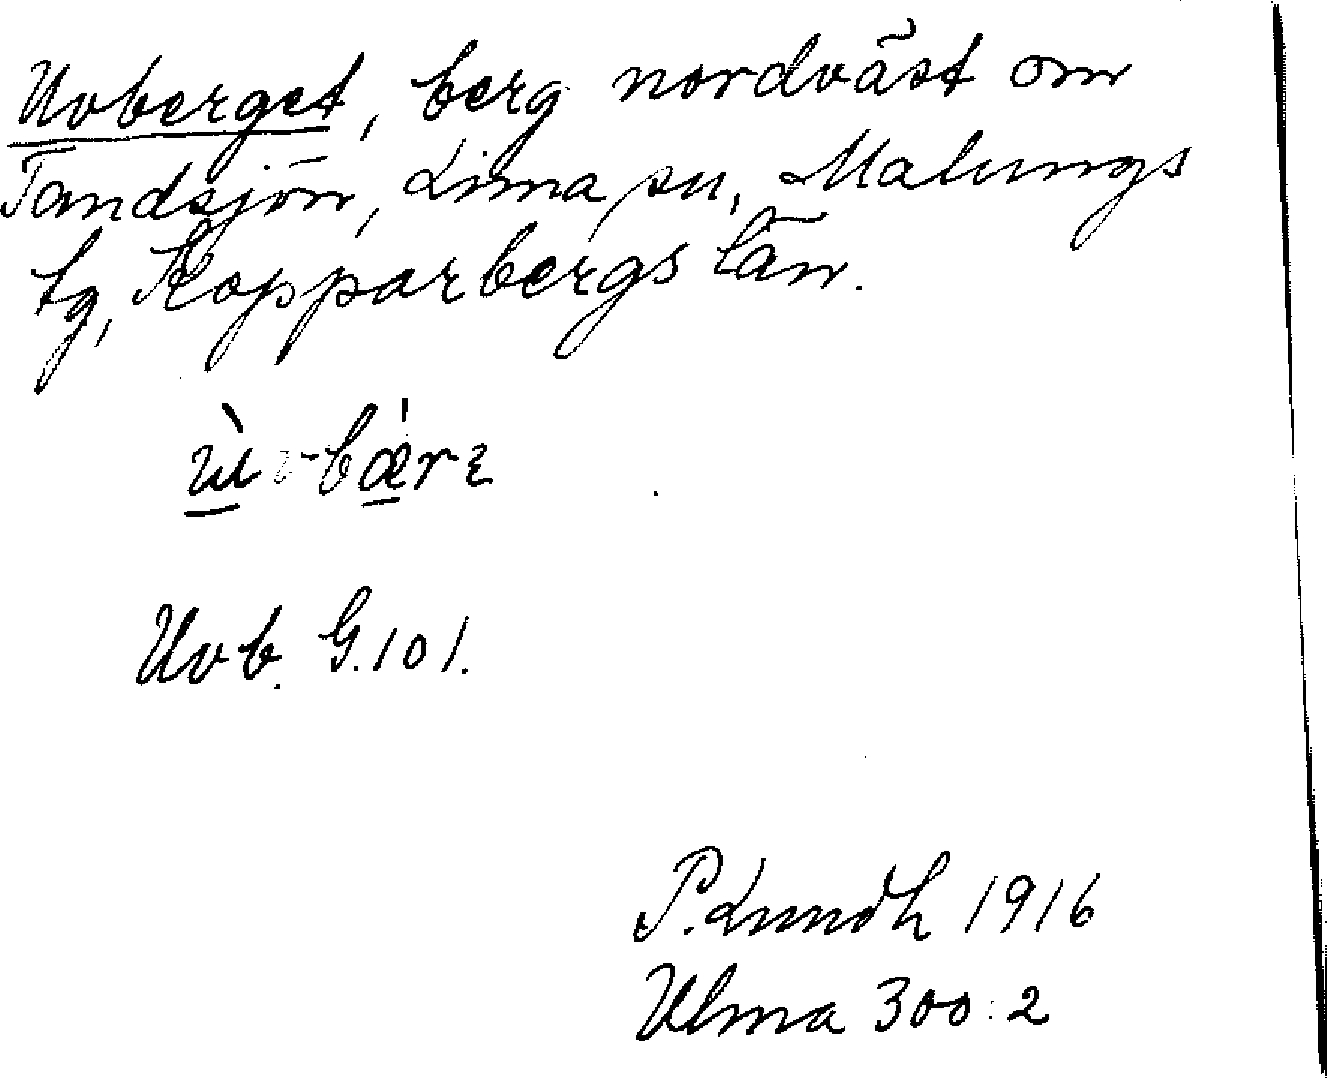 Uvberget, berg nordväst om
Tandsjön, Lima sn, Malungs
tg, Kopparbergs län.
ùv-bǽrɛ
Uvb. G.101.
P. Lundh 1916
Ulma 300:2